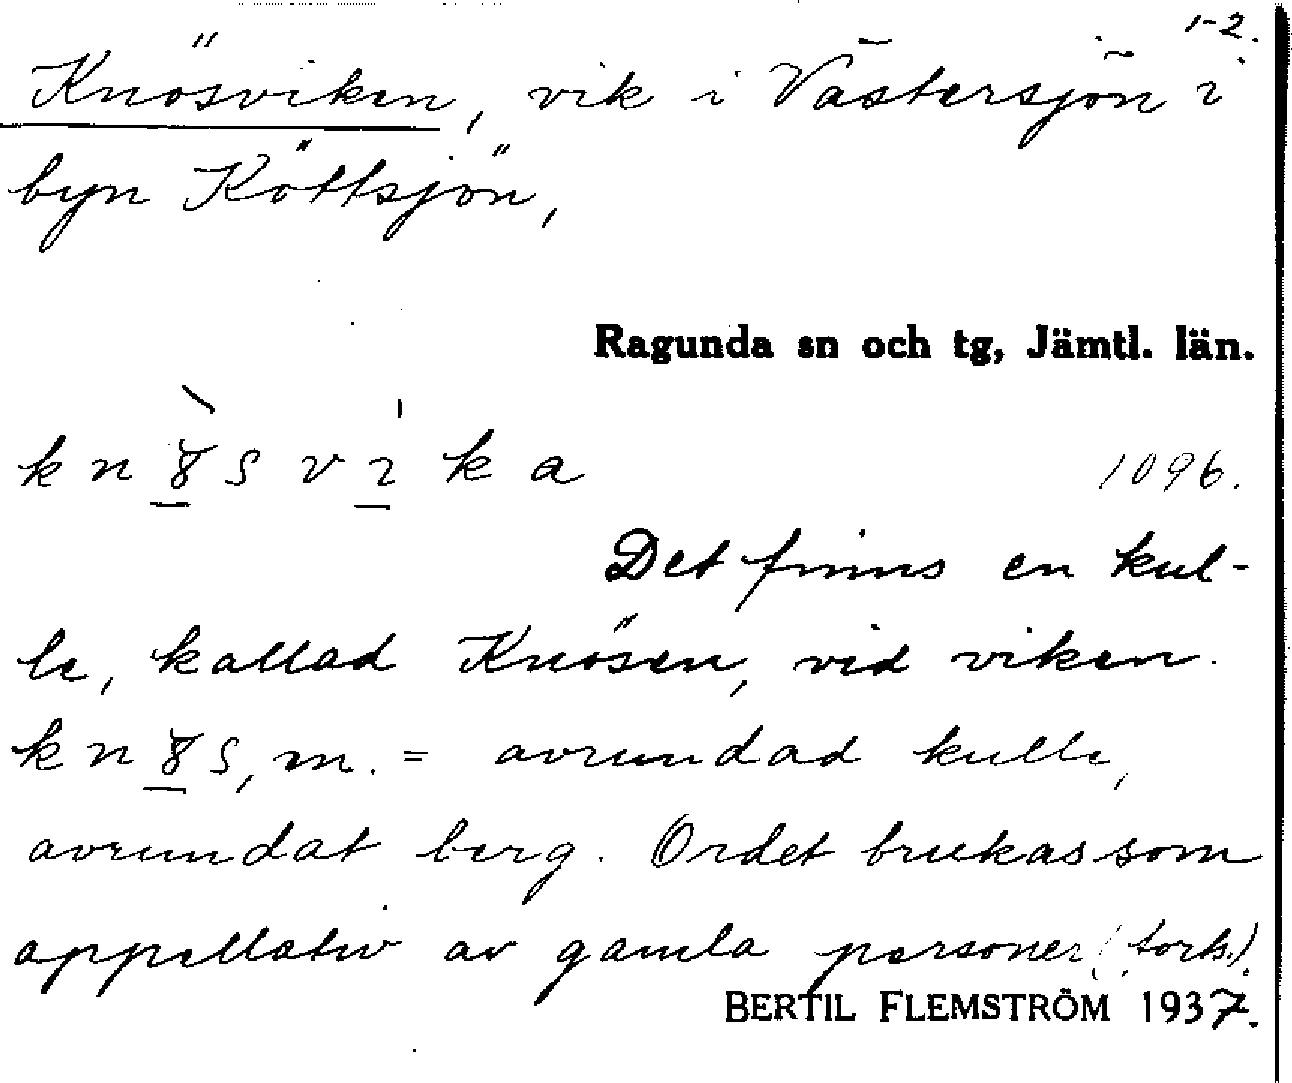 1-2.
Knösviken, vik i Västersjön i
byn Köttsjön,
Ragunda sn och tg, Jämtl. län.
k n 8̲̀ s v ı̲̍ k a 1096.
Det finns en kul-
le, kallad Knösen, vid viken.
k n 8̲ s, m. = avrundad kulle,
avrundat berg. Ordet brukas som
appellativ av gamla personer (forts.)
BERTIL FLEMSTRÖM 1937.